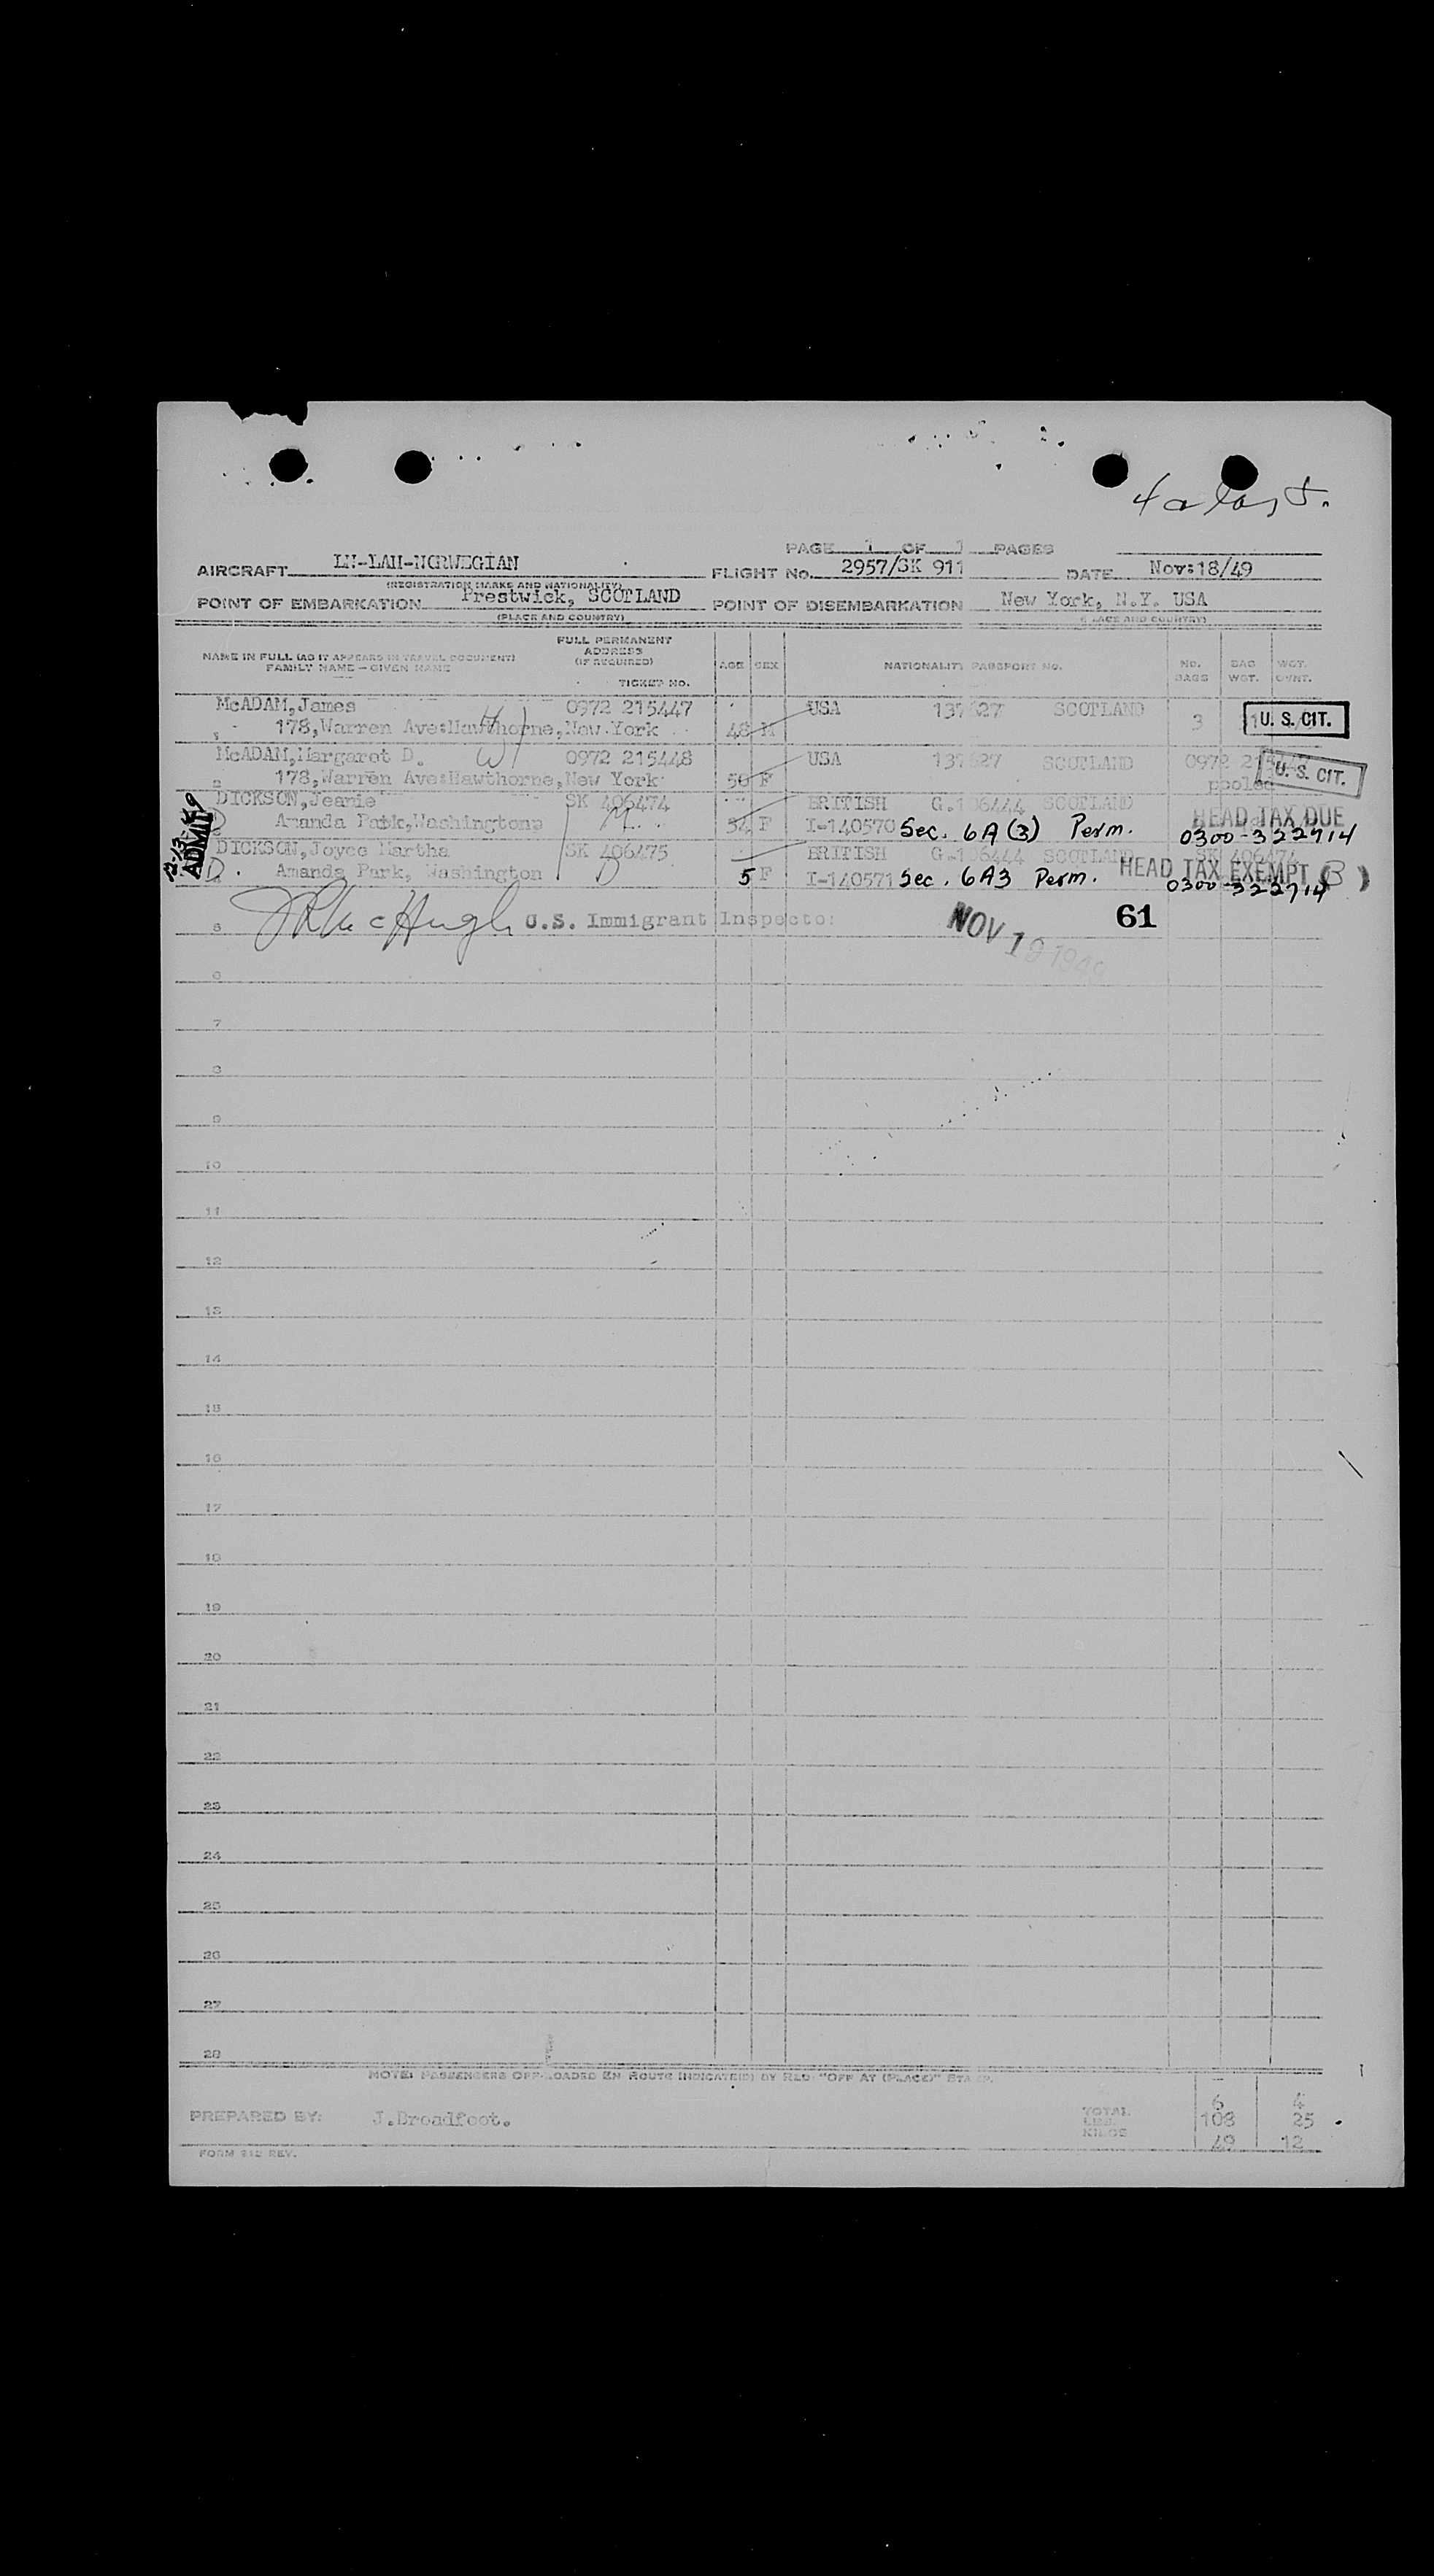 PAGE 1 OF 1 PAGES
AIRCRAFT LN-LAH-NORWEGIAN FLIGHT No. 2957/SK 911 DATE Nov:18/49
(REGISTRATION MARKS AND NATIONALITY)
POINT OF EMBARKATION Prestwick, SCOTLAND POINT OF DISEMBARKATION New York, N.Y. USA
(PLACE AND COUNTRY) (PLACE AND COUNTRY)
NAME IN FULL (AS IT APPEARS IN TRAVEL DOCUMENT) FAMILY NAME — GIVEN NAME
FULL PERMANENT ADDRESS (IF REQUIRED)
TICKET NO.
AGE SEX NATIONALITY PASSPORT NO. NO. BAGS BAG WGT. WGT. OVNT.
McADAM,James 0972 215447 USA SCOTLAND
178,Warren Ave:Hawthorne,New York 48 M 3 U. S. CIT.
McADAM,Margaret D. W 0972 215448 USA SCOTLAND 0972
2 178,Warren Ave:Hawthorne,New York 50 F pooled U. S. CIT.
DICKSON,Jeanie SK 406474 BRITISH SCOTLAND HEAD TAX DUE
Amanda Park,Washington M. F I-140570 Sec. 6A (3) Perm. 0300-322914
ADMIT
DICKSON,Joyce Martha SK 406475 BRITISH SCOTLAND SK 406474
D. Amanda Park, Washington D 5 F I-140571 Sec. 6A3 Perm. HEAD TAX EXEMPT (B)
0300-322914
5 J R McHugh U.S. Immigrant Inspector NOV 19 1949 61
6
7
8
9
10
11
12
13
14
15
16
17
18
19
20
21
22
23
24
25
26
27
28
NOTE: PASSENGERS OFF-LOADED EN ROUTE INDICATED BY RED "OFF AT (PLACE)" STAMP.
PREPARED BY: J.Broadfoot.
TOTAL 6 4
LBS. 108 25
KILOS 49 12
FORM 212 REV.